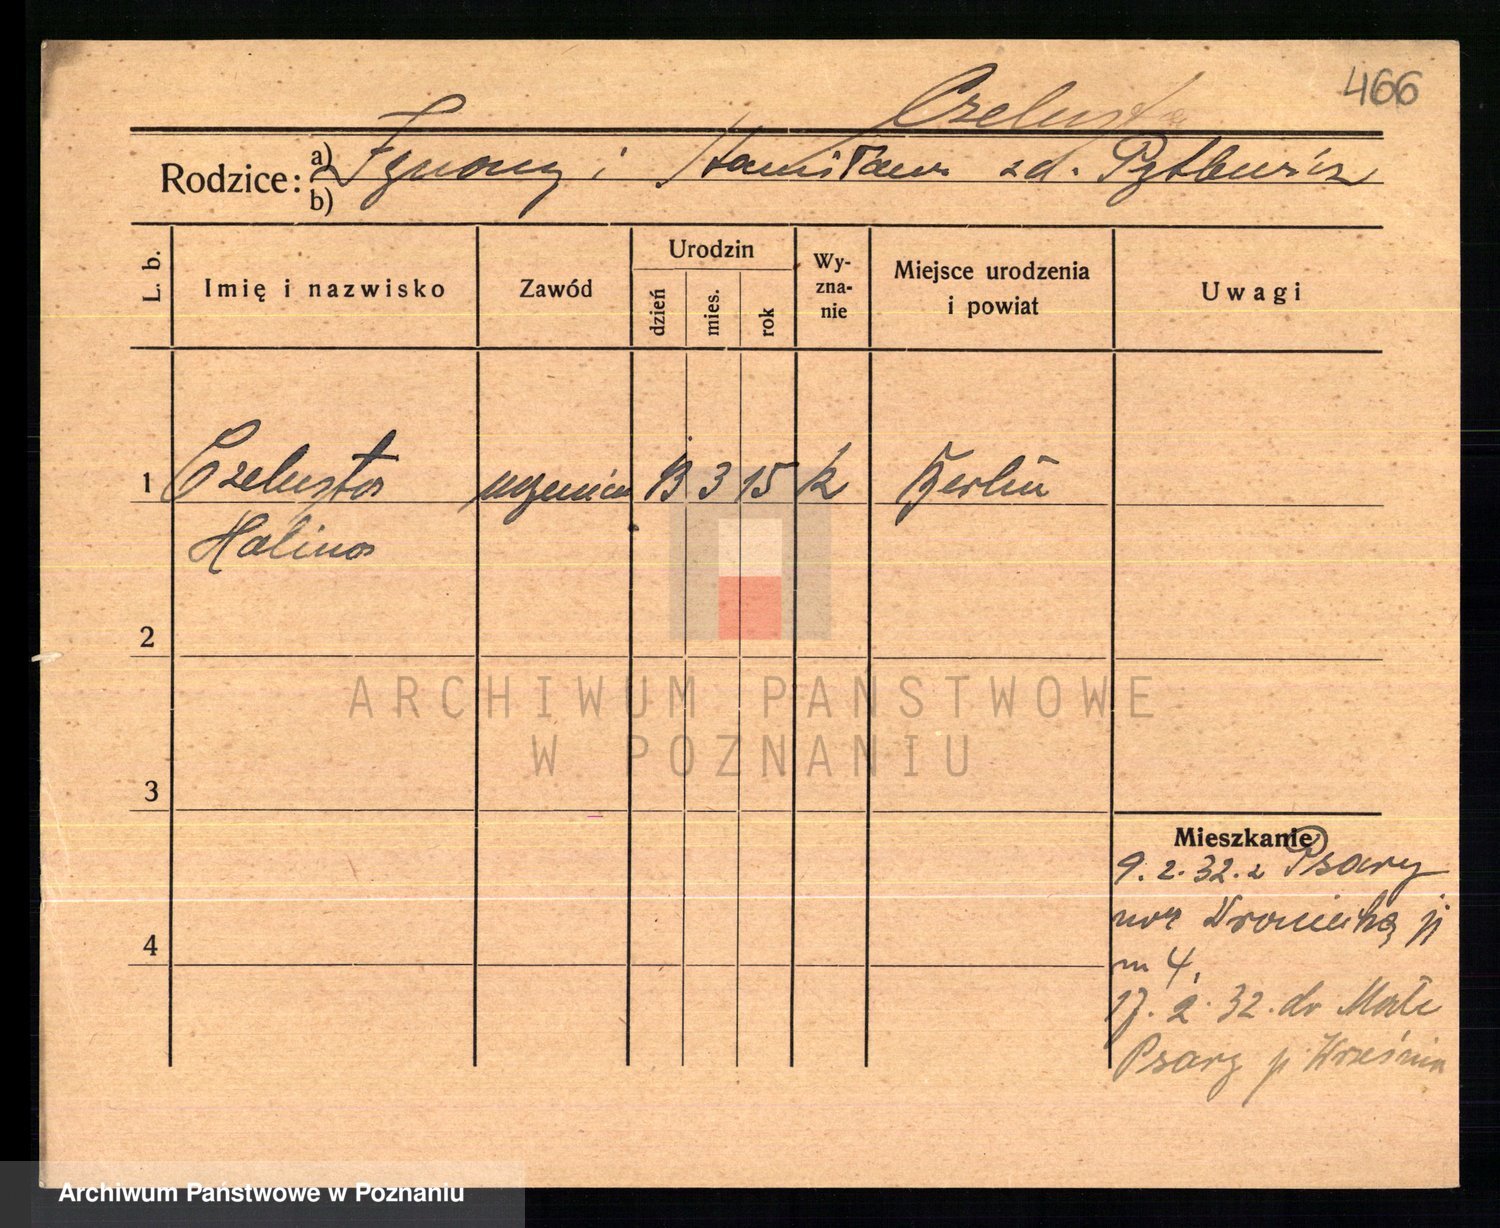 466
Czelusta
Rodzice: a) Ignacy i Stanisława zd.
b)
L. b.
Imię i nazwisko
Zawód
Urodzin
dzień
mies.
rok
Wy-
zna-
nie
Miejsce urodzenia
i powiat
Uwagi
1 Czelusta uczenica 13 3 15 k Berlin
Halina
2
3
4
Mieszkanie
9. 2. 32. z Psary
m 4,
17. 2. 32. do Małe
Psary p. Września
ARCHIWUM PAŃSTWOWE
W POZNANIU
Archiwum Państwowe w Poznaniu